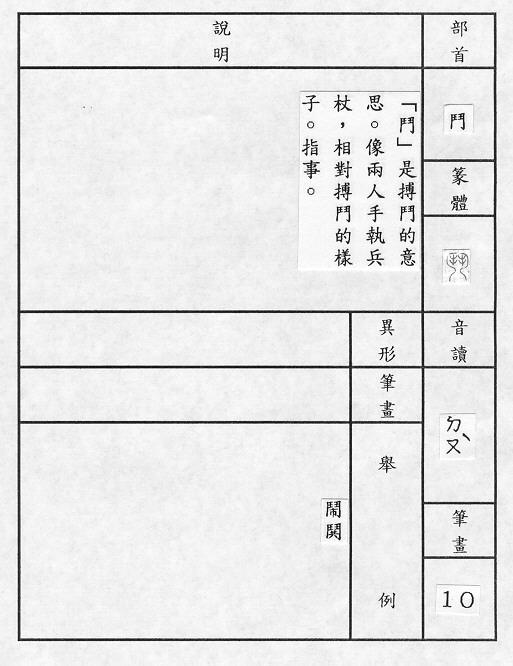 部首
鬥
篆體
音讀
ㄉㄡˋ
筆畫
10
說明
「鬥」是搏鬥的意
思。像兩人手執兵
杖，相對搏鬥的樣
子。指事。
異形
筆畫
舉例
鬧鬨